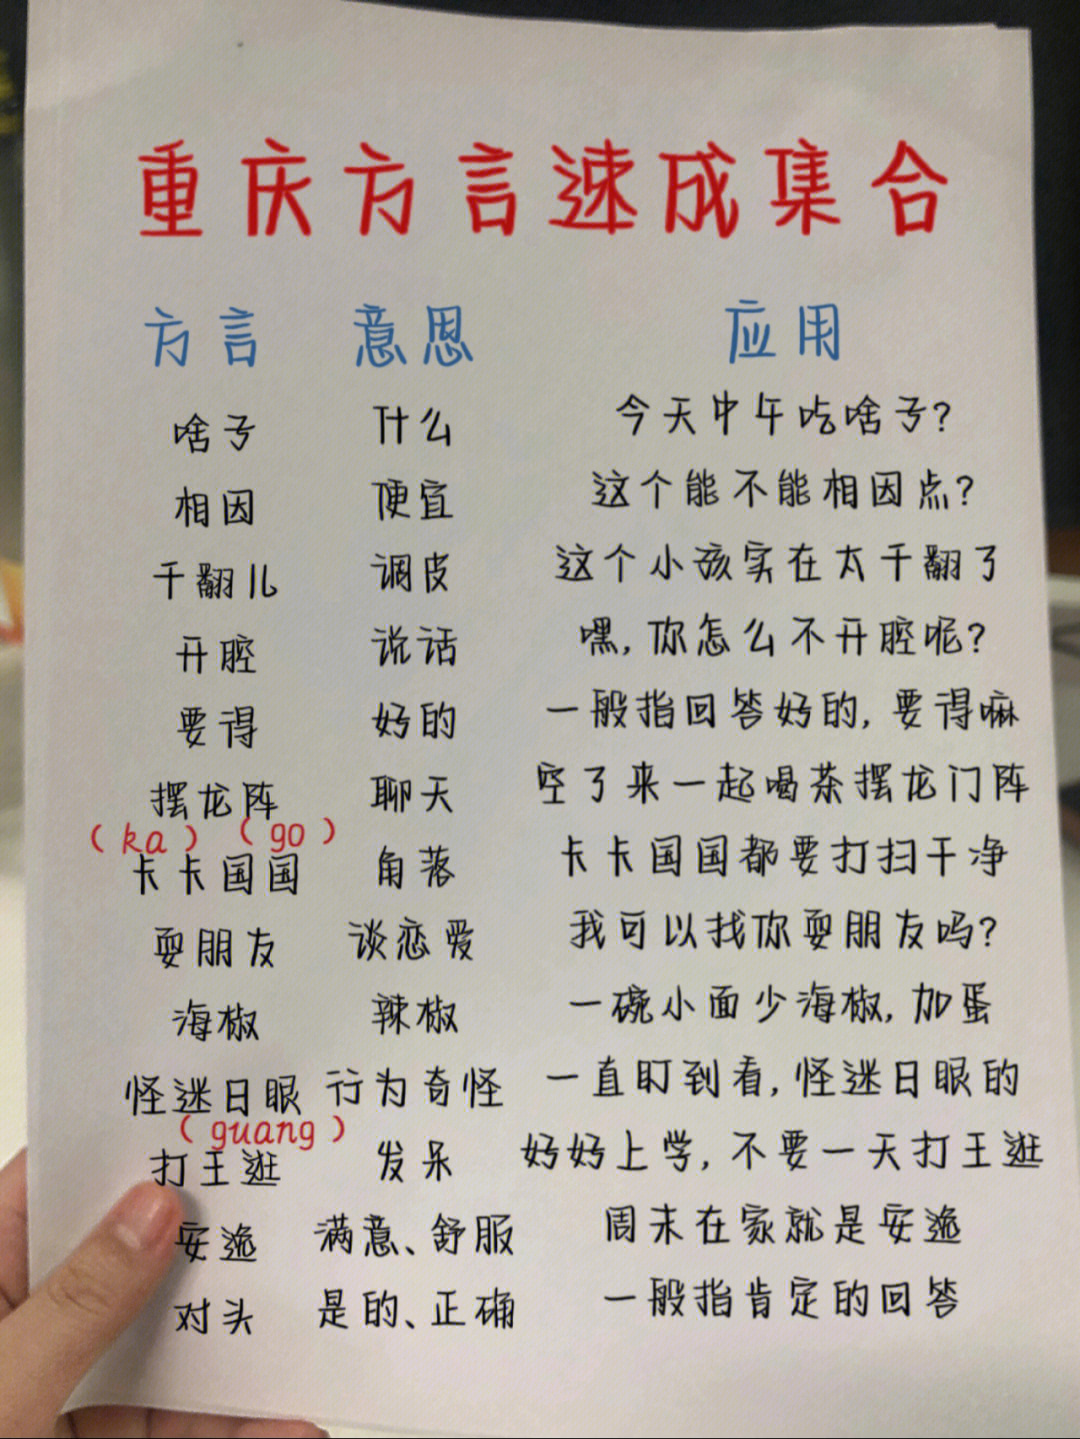 重庆方言速成集合
方言 意思 应用
啥子 什么 今天中午吃啥子?
相因 便宜 这个能不能相因点?
千翻儿 调皮 这个小孩实在太千翻了
开腔 说话 嘿,你怎么不开腔呢?
要得 好的 一般指回答好的,要得嘛
摆龙阵 聊天 空了来一起喝茶摆龙门阵
(ka) (go)
卡卡国国 角落 卡卡国国都要打扫干净
耍朋友 谈恋爱 我可以找你耍朋友吗?
海椒 辣椒 一碗小面少海椒,加蛋
怪迷日眼 行为奇怪 一直盯到看,怪迷日眼的
(guang)
打王逛 发呆 好好上学,不要一天打王逛
安逸 满意、舒服 周末在家就是安逸
对头 是的、正确 一般指肯定的回答